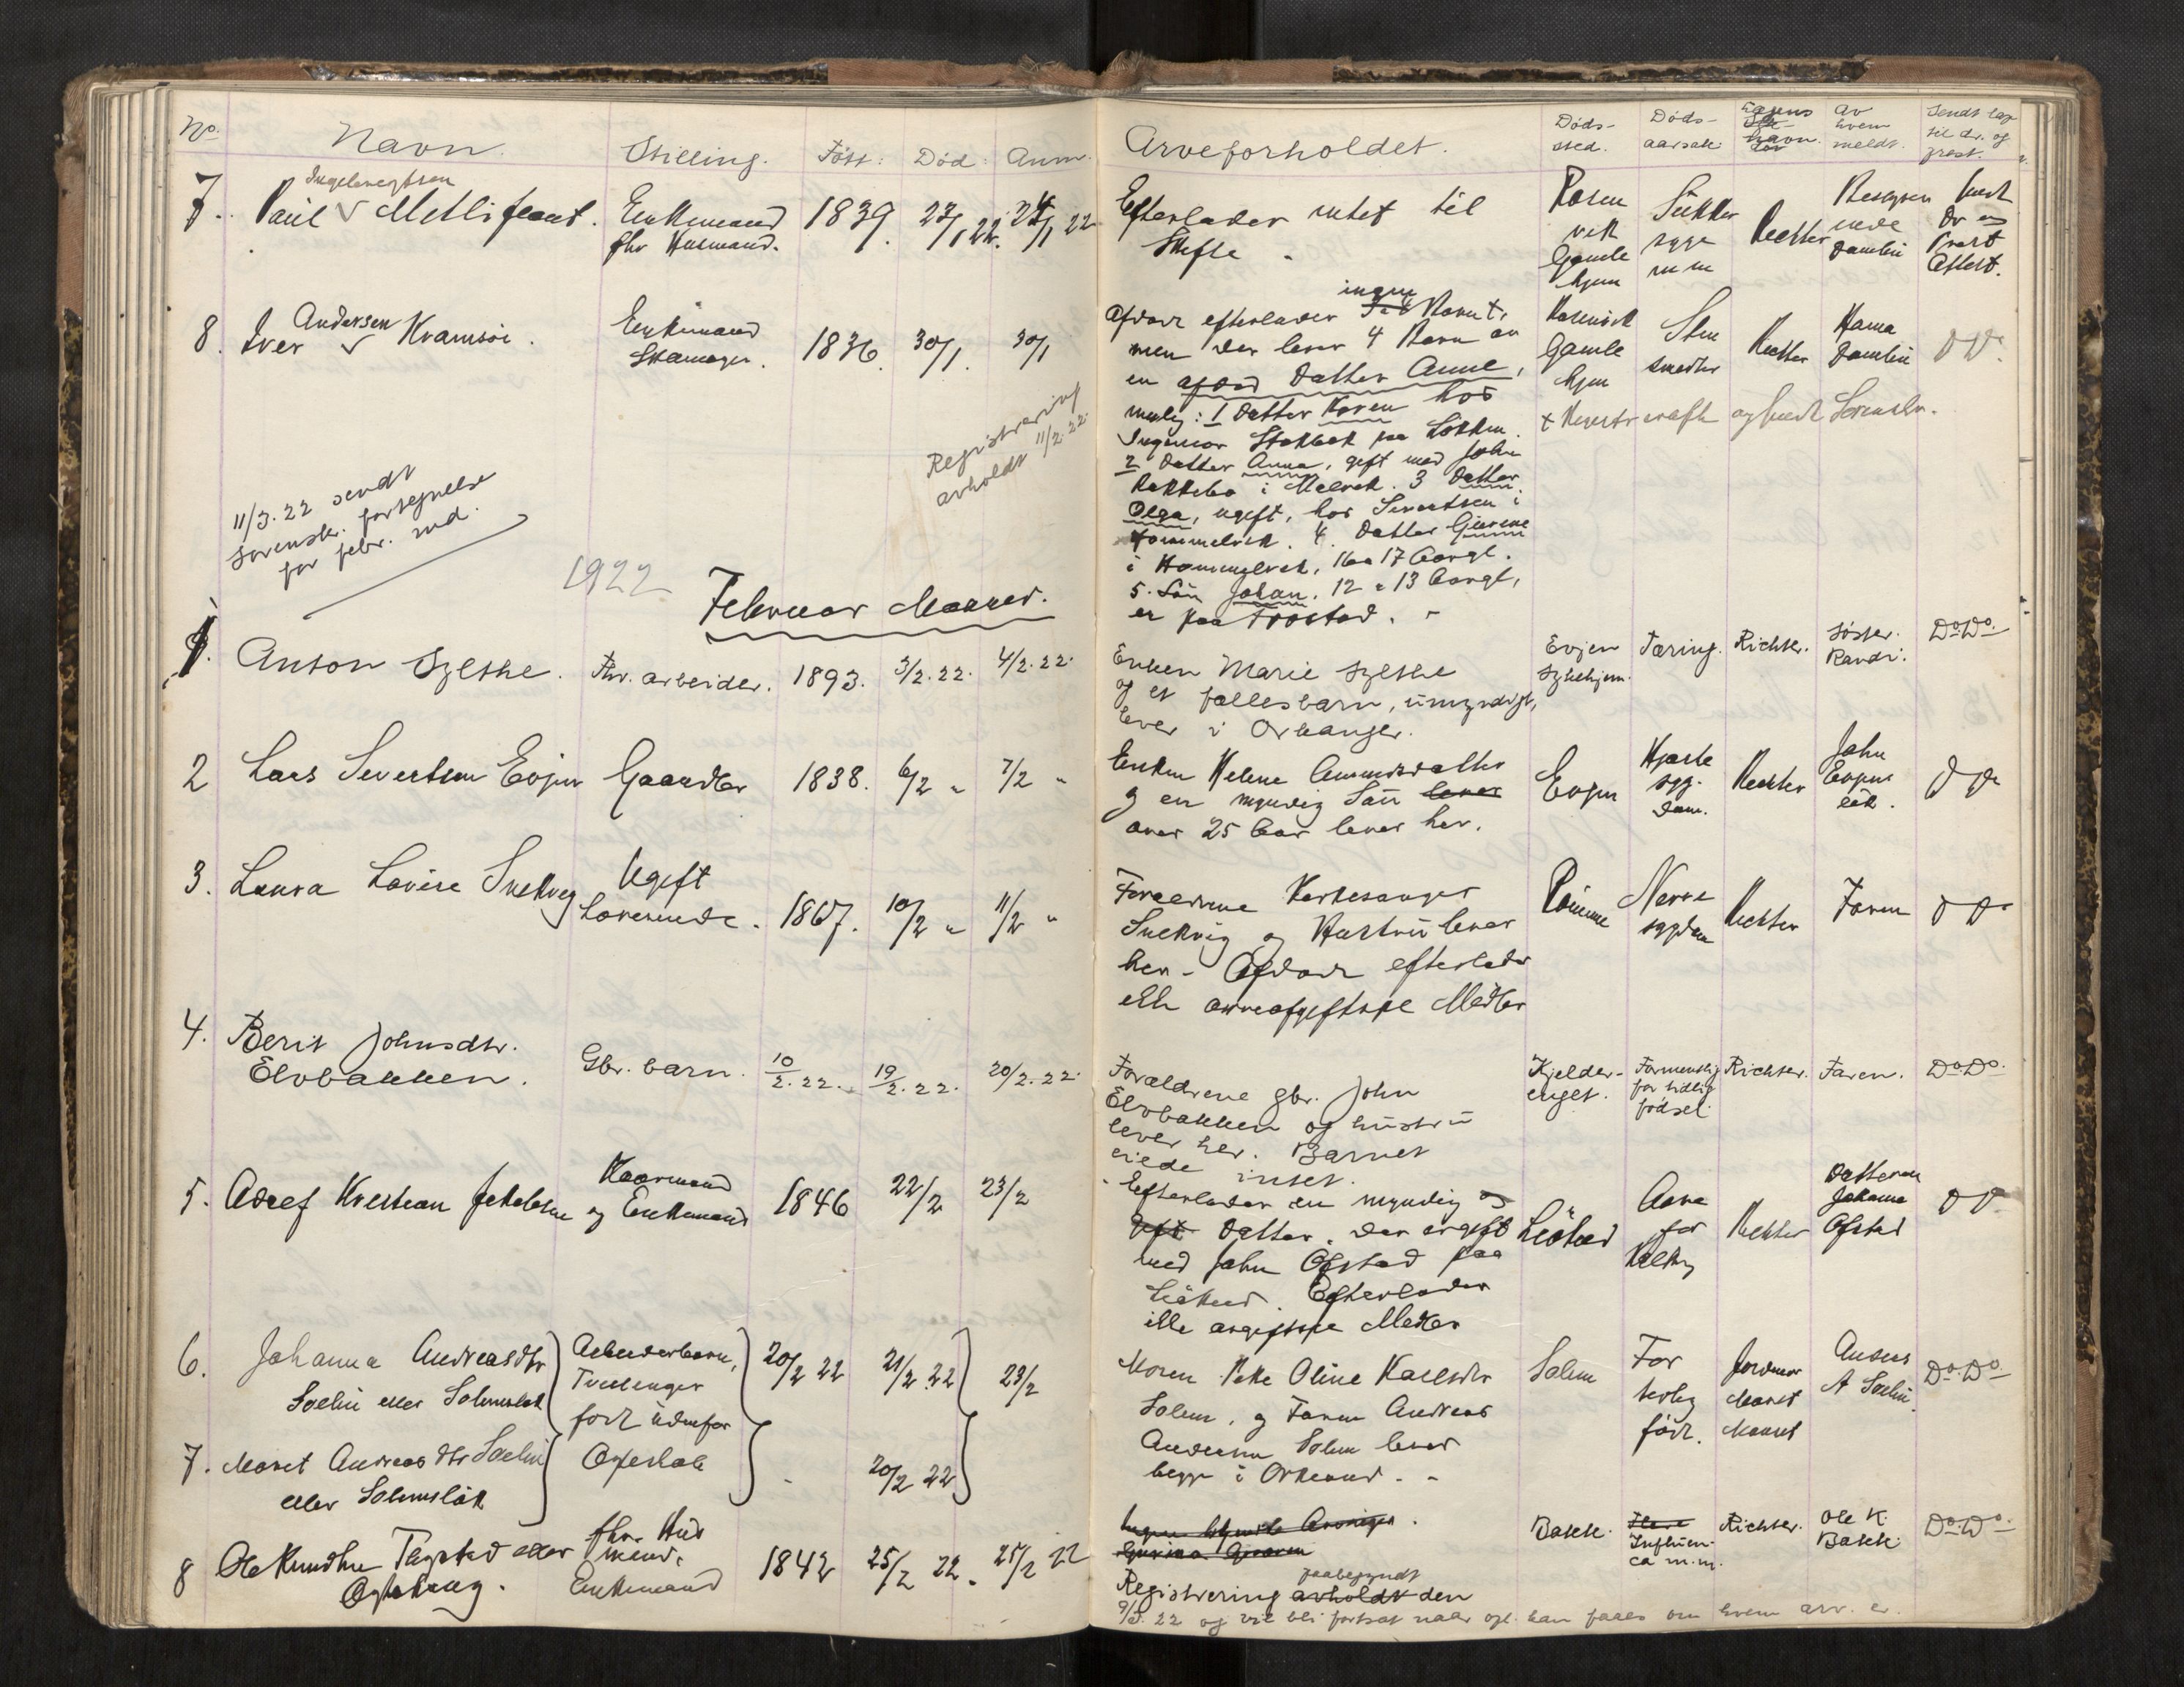 No. Navn. Stilling. Født: Død: Anm.
7. Paul Ingebrigtsen Metlifeant. Enkemand 1839. 27/1 22. 27/1 22
fhv Husmand.
8. Iver Andersen Kramsøi. Enkemand
Skomager. 1836. 30/1. 30/1
Registrering
avholdt 11/2.22.
11/3.22 sendt
sorenskr. fortegnelse
for febr. md.
1922
Februar Maaned.
1. Anton Sylthe. Fhv. arbeider. 1893. 3/2.22. 4/2.22.
2 Lars Sivertsen Evjen Gaardbr 1838. 6/2 " 7/2 "
3. Laura Lovise Snekvig Ugift
Lærerinde. 1867. 10/2 " 11/2 "
4. Berit Johnsdtr.
Elvbakken. Gbr. barn. 10/2.22. 19/2.22. 20/2.22.
5. Kaarmand
og Enkemand 1846 22/2 23/2
6. Johanna Andreasdtr Arbeiderbarn, 20/2 22 21/2 22 23/2
Solem eller Solemsløk Tvillinger
født udenfor
7. Maret Andreasdtr Solem Ægteskab 20/2 22
eller Solemsløk
8 Ole Knudsen eller fhv. Hus
mand. 1842 25/2 22. 25/2 22
Enkemand
Arveforholdet. Døds-
sted. Døds-
aarsak. Lægens
navn. Av
hvem
meldt. Sendt læg
til dr. og
prest.
Efterlader intet til
Skifte.
Rosen
vik
Gamle
hjem
Sukker
syge
m m
Richter
Bestyrer
inde
Damlin
Sendt
Dr og
Prest
Attest.
Afdøde efterlader ingen Born +
men der lever 4 Born av
en afdød Datter Anne,
nemlig: 1 Datter Karen hos
Ingeniør Stokbak paa Løkken.
2 Datter Anna, gift med John
i Melvik. 3 Datter
Olga, ugift, hos Sivertsen i
Hommelvik. 4. Datter
i Hommelvik, 16 a 17 Aargl.
5. Søn Johan, 12 a 13 Aargl,
er paa Frostad.
Rosenvik
Gamle
hjem
Richter
Hama
Damlin
Do Do.
Enken Marie Sylthe
og et fællesbarn, umyndigt,
lever i Orkanger.
Evjen
sykehjem.
Tæring. Richter. Søster.
Randi. Do Do.
Enken Helene Amundsdatter
og en myndig Søn lever
over 25 Aar lever her.
Evjen
Hjerte
syg-
dom.
Richter
John
Evjens
eik.
Do Do
Forældrene Kirkesanger
Snekvig og Hustru lever
her. Afdøde efterlader
ikke arveafgiftspl Midler
Rømme
Nerve
sygdom
Richter
Faren
Do Do
Forældrene gbr. John
Elvbakken og hustru
lever her. Barnet
eiede intet.
Kjelder-
enget.
Formentlig
for tidlig
fødsel.
Richter. Faren. Do Do.
Efterlader en myndig og
gift Datter, der er gift
med John Ofstad paa
Efterlader
ikke avgiftspl Midler
Aare
for
kalkn
Richter
Datteren
Johanna
Ofstad
Do Do
Moren Pike Oline Karlsdtr
Solem, og Faren Andreas
Andersen Solem lever
begge i Orkland.
Solem
For
tidlig
født.
Jordmor
Maret
Anders
A Solem
Do. Do.
Registrering avholdt paabegyndt den
9/3. 22 og vil bli fortsat naar opl. kan faaes om hvem arv. er.
Bakk.
Influen-
ca m.m.
Richter.
Ole K.
Bakk.
Do. Do.